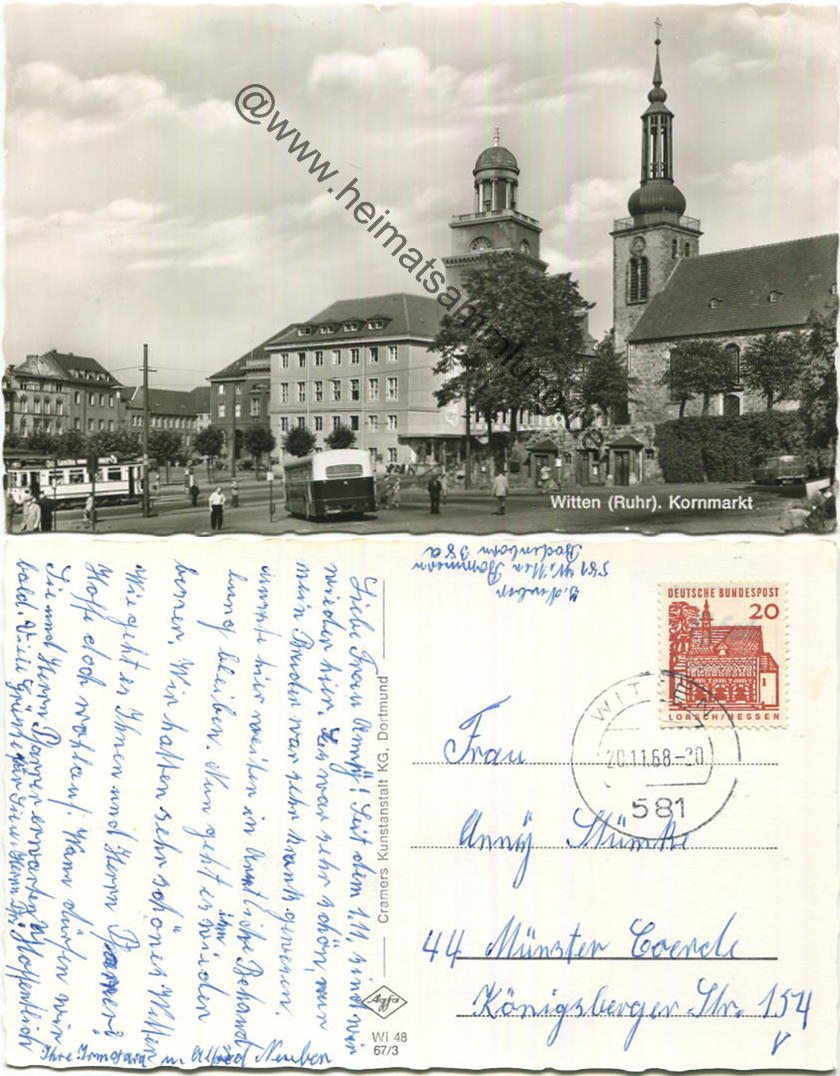 @www.heimatsammlung.de
Witten (Ruhr). Kornmarkt
581 Witten Bommern
Bodenborn 38a
DEUTSCHE BUNDESPOST
20
LORSCH/HESSEN
WITTEN 1
20.11.68-20
581
Frau
Anny Stümke
44 Münster Coerde
Königsberger Str. 154
Cramers Kunstanstalt KG, Dortmund
Agfa
Wi 48
67/3
Liebe Frau Anny! Seit dem 1.11. sind wir
wieder hier. Es war sehr schön, nur
mein Bruder war sehr krank gewesen.
musste hier weiter in Ärztliche Behand
lung bleiben. Nun geht es ihm wieder
besser. Wir hatten sehr schönes Wetter.
Wie geht es Ihnen und Herrn
Hoffe doch wohlauf. Wann dürfen wir
Sie und Herrn erwarten? Hoffentlich
bald. Viele Grüße für Sie u. Herrn
Ihre u. Alfred Neuber